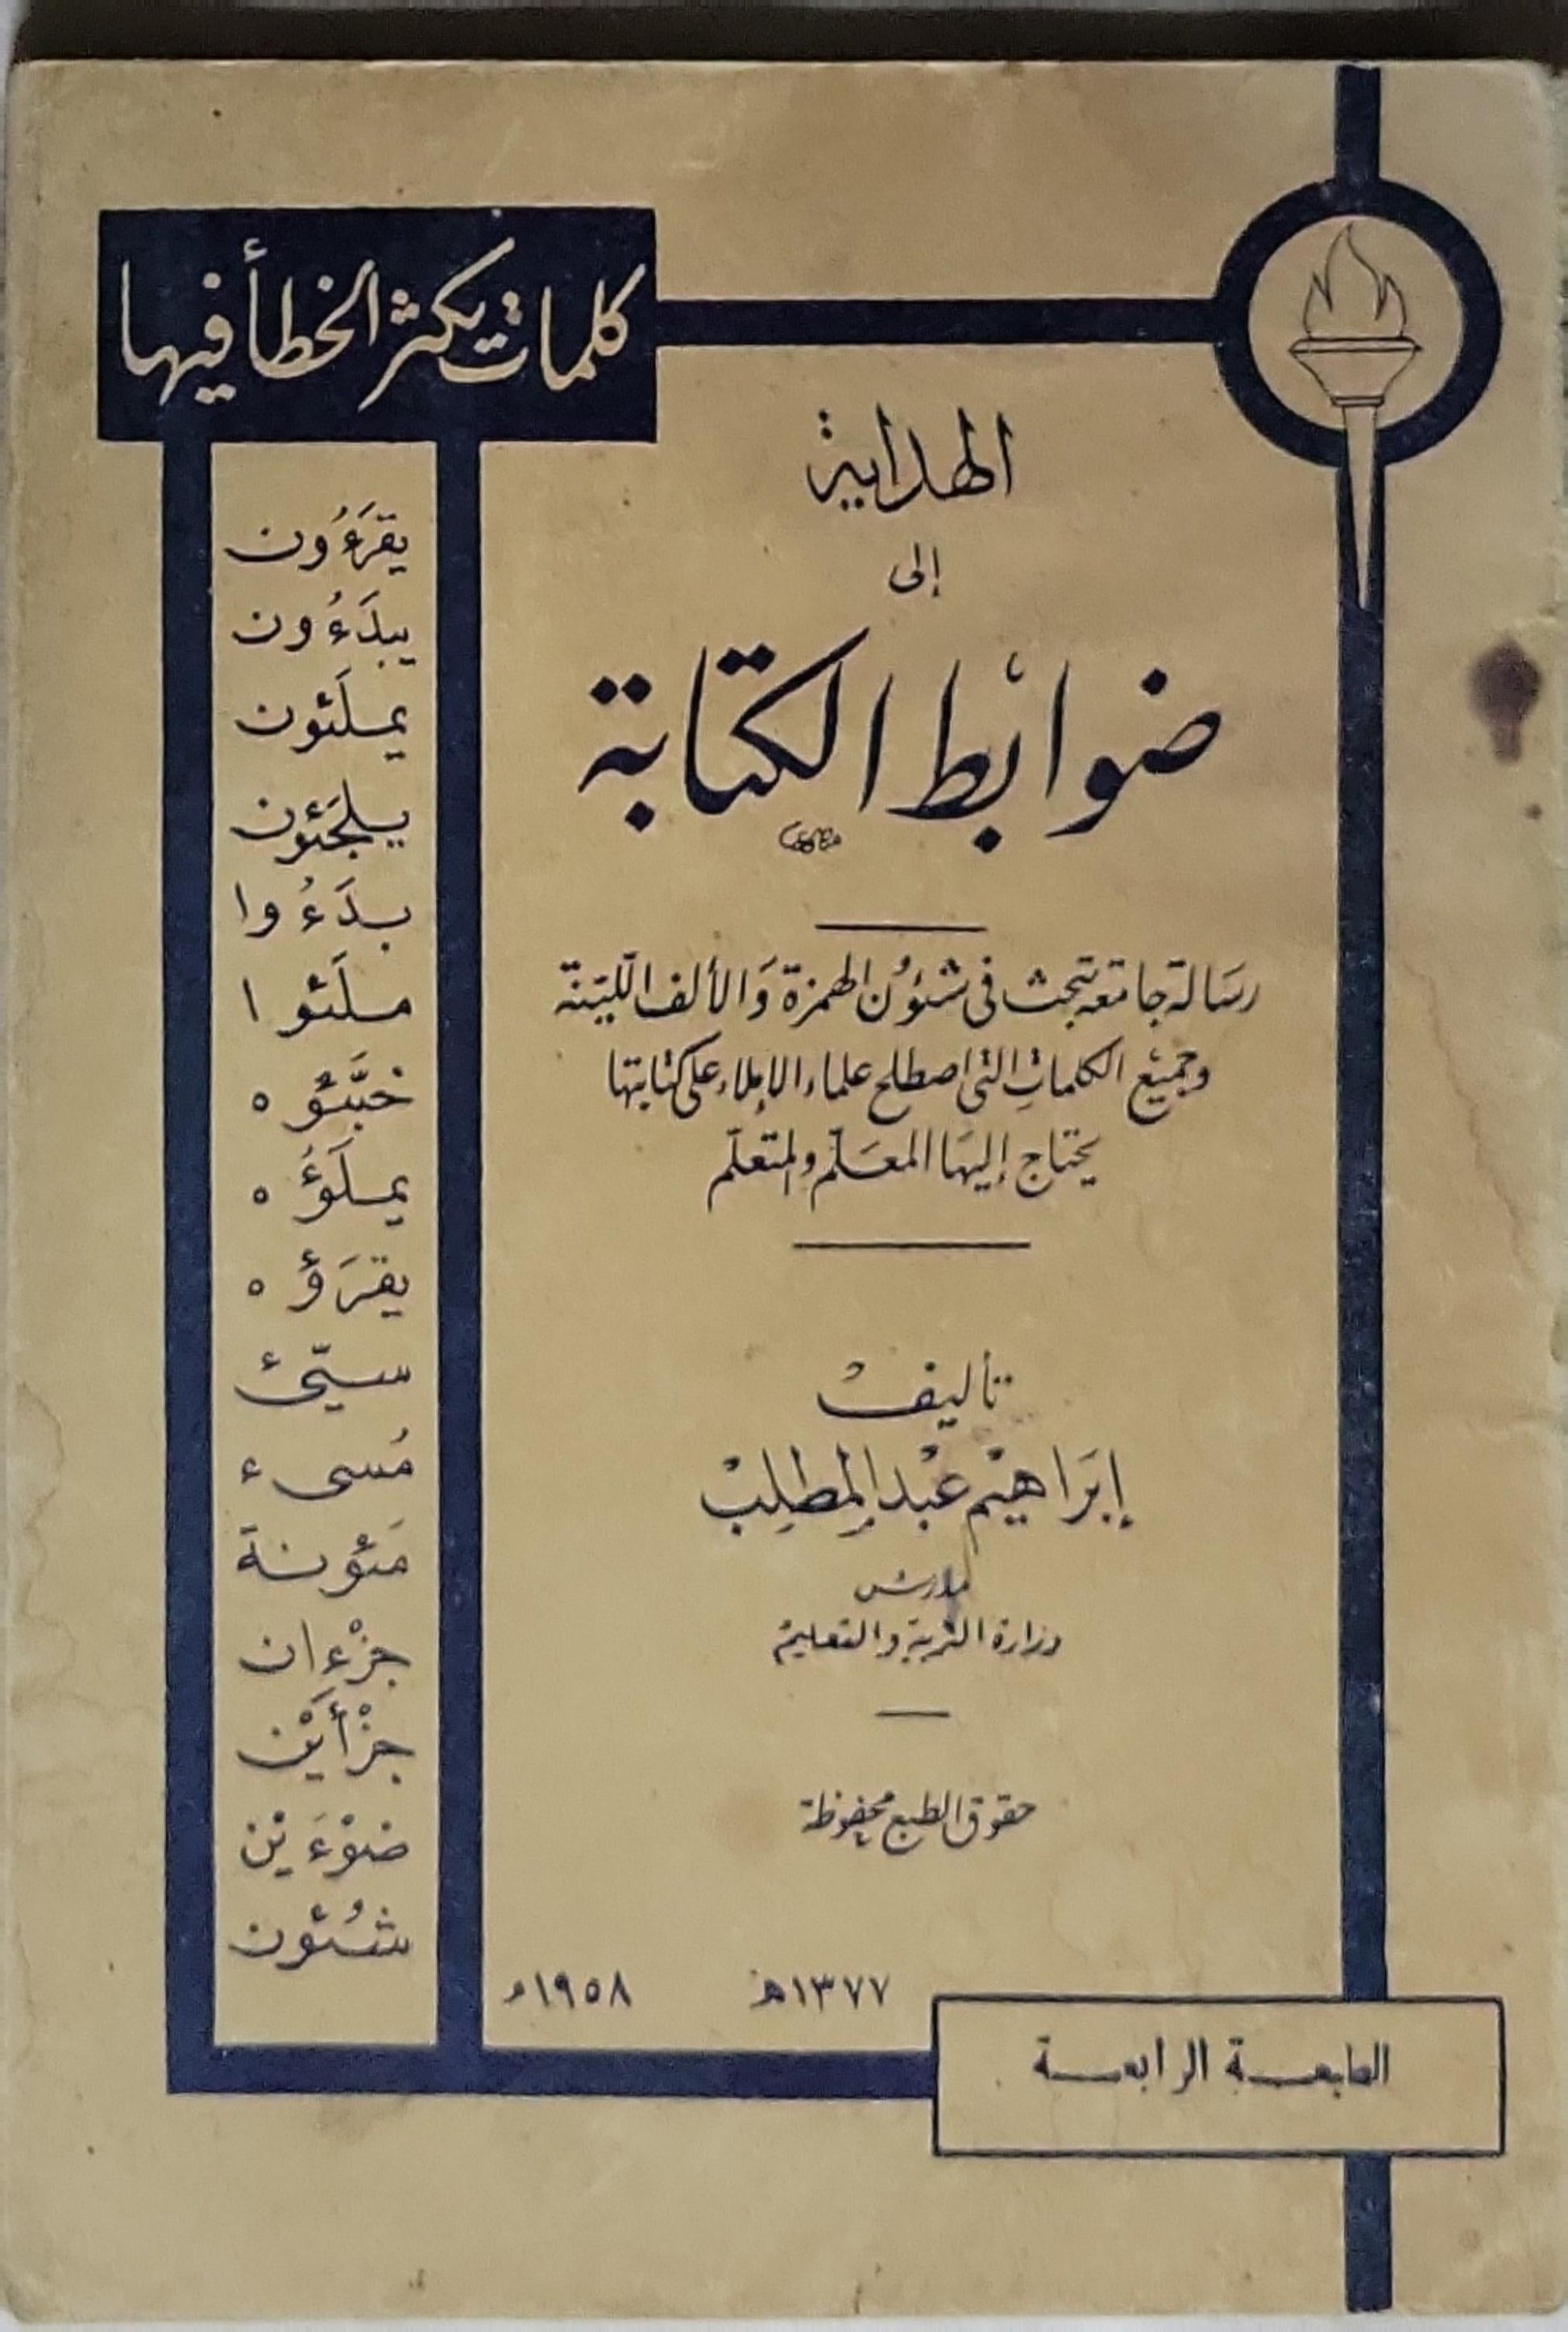 كلمات يكثر الخطأ فيها
يقرَءُون
يبدَءُون
يملَئون
يلجَئون
بدَءُوا
ملَئوا
خبَّئوه
يملَؤُه
يقرَؤُه
سيّئ
مُسىء
مَئونة
جزْءان
جزْأَيْن
ضوْءَيْن
شئُون
الهداية
إلى
ضوابط الكتابة
رسَالة جامعة تبحث فى شئوُن الهمزة وَالألف اللّينة
وجميْع الكلماتِ التى اصطلح علماء الإملاء على كتابتها
يحتاج إليهَا المعَلّم والمتعلّم
تأليفْ
إبَراهيْم عبْد المطلِبْ
مدرس
وزارة التربية والتعليم
حقوق الطبع محفوظة
١٣٧٧ه ١٩٥٨م
الطبعـة الرابعـة